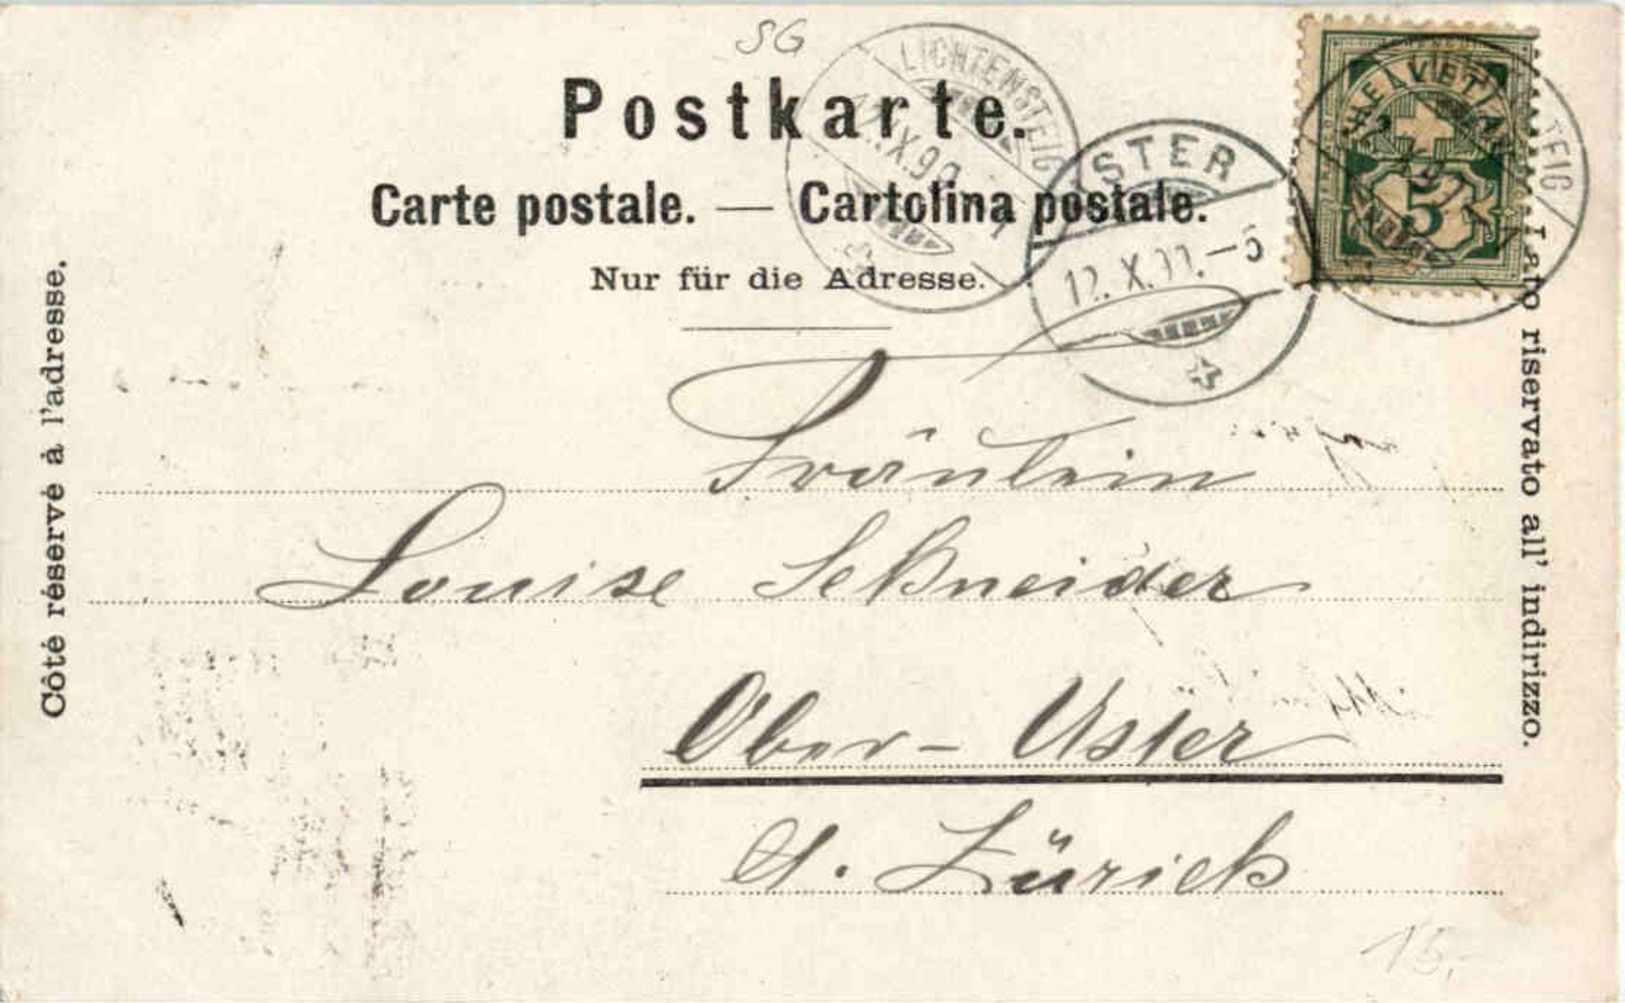 SG
Postkarte.
Carte postale. — Cartolina postale.
Nur für die Adresse.
LICHTENSTEIG
USTER
12. X. 99.-5
HELVETIA
5
TEIG
Côté réservé à l'adresse.
Lato riservato all' indirizzo.
Fräulein
Louise Schneider
Ober-Uster
Ct. Zürich
15.-